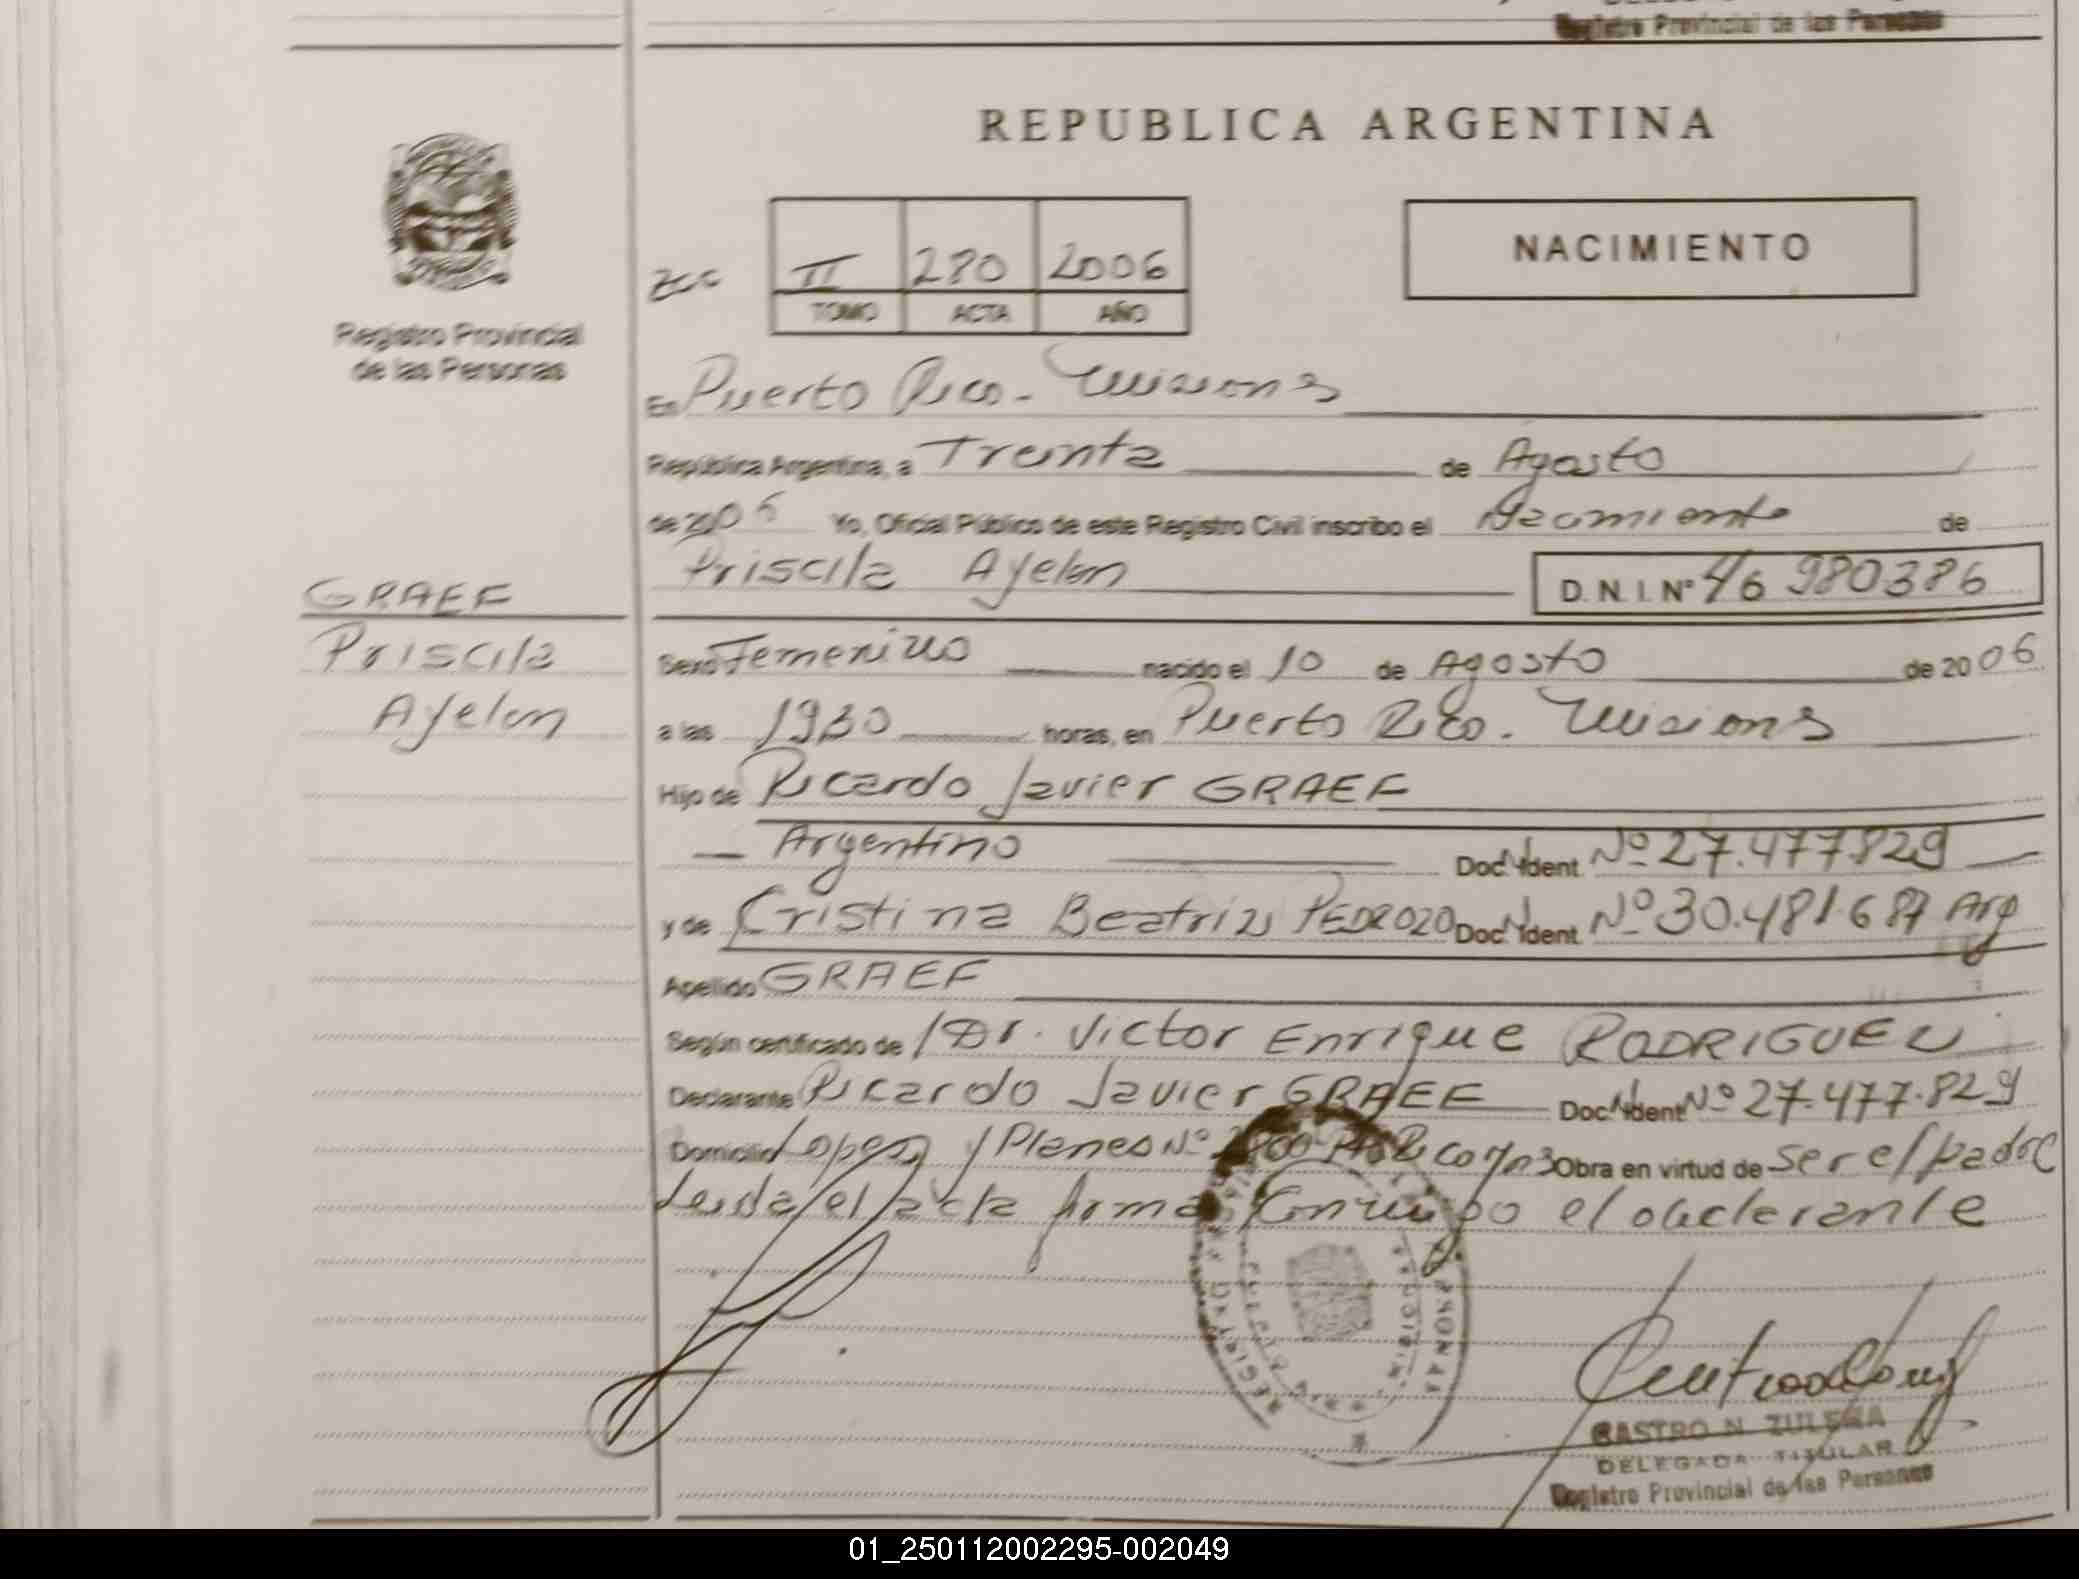 Registro Provincial de las Personas
REPUBLICA ARGENTINA
II 280 2006
TOMO ACTA AÑO
NACIMIENTO
Registro Provincial
de las Personas
En Puerto Rico - Misiones
República Argentina, a Treinta de Agosto
de 2006 Yo, Oficial Público de este Registro Civil inscribo el Nacimiento de
Priscila Ayelen D.N.I. Nº 46 980386
GRAEF
Priscila
Ayelen
Sexo Femenino nacido el 10 de Agosto de 2006
a las 1930 horas, en Puerto Rico. Misiones
Hijo de Ricardo Javier GRAEF
Argentino Doc. Ident Nº 27.477.829
y de Cristina Beatriz PEDROZO Doc. Ident Nº 30.481.687 Arg
Apellido GRAEF
Según certificado de Dr. Victor Enrique RODRIGUEZ
Declarante Ricardo Javier GRAEF Doc. Ident Nº 27.477.829
Domicilio Lopez y Planes Nº Rico Mns Obra en virtud de ser el padre
Leida el acta firma Conmigo el declarante
CASTRO N. ZULEMA
DELEGADA TITULAR
Registro Provincial de las Personas
01_250112002295-002049